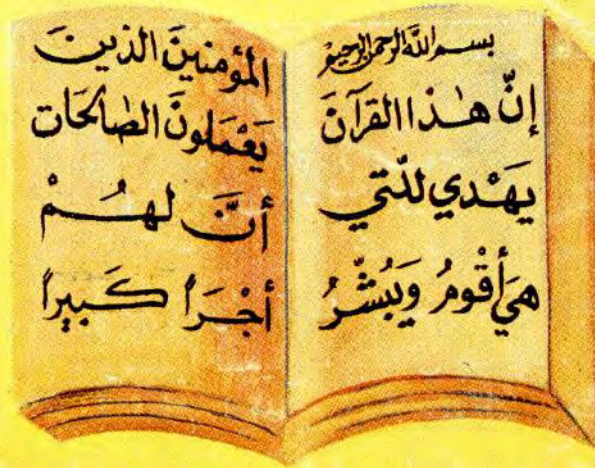 بسم الله الرحمن الرحيم
إنّ هٰذا القرآنَ
يَهْدي للّتي
هيَ أَقْومُ وَيُبشّرُ
المؤمنينَ الذينَ
يَعْمَلونَ الصّالحَات
أنَّ لهُمْ
أجْرَاً كَبيراً